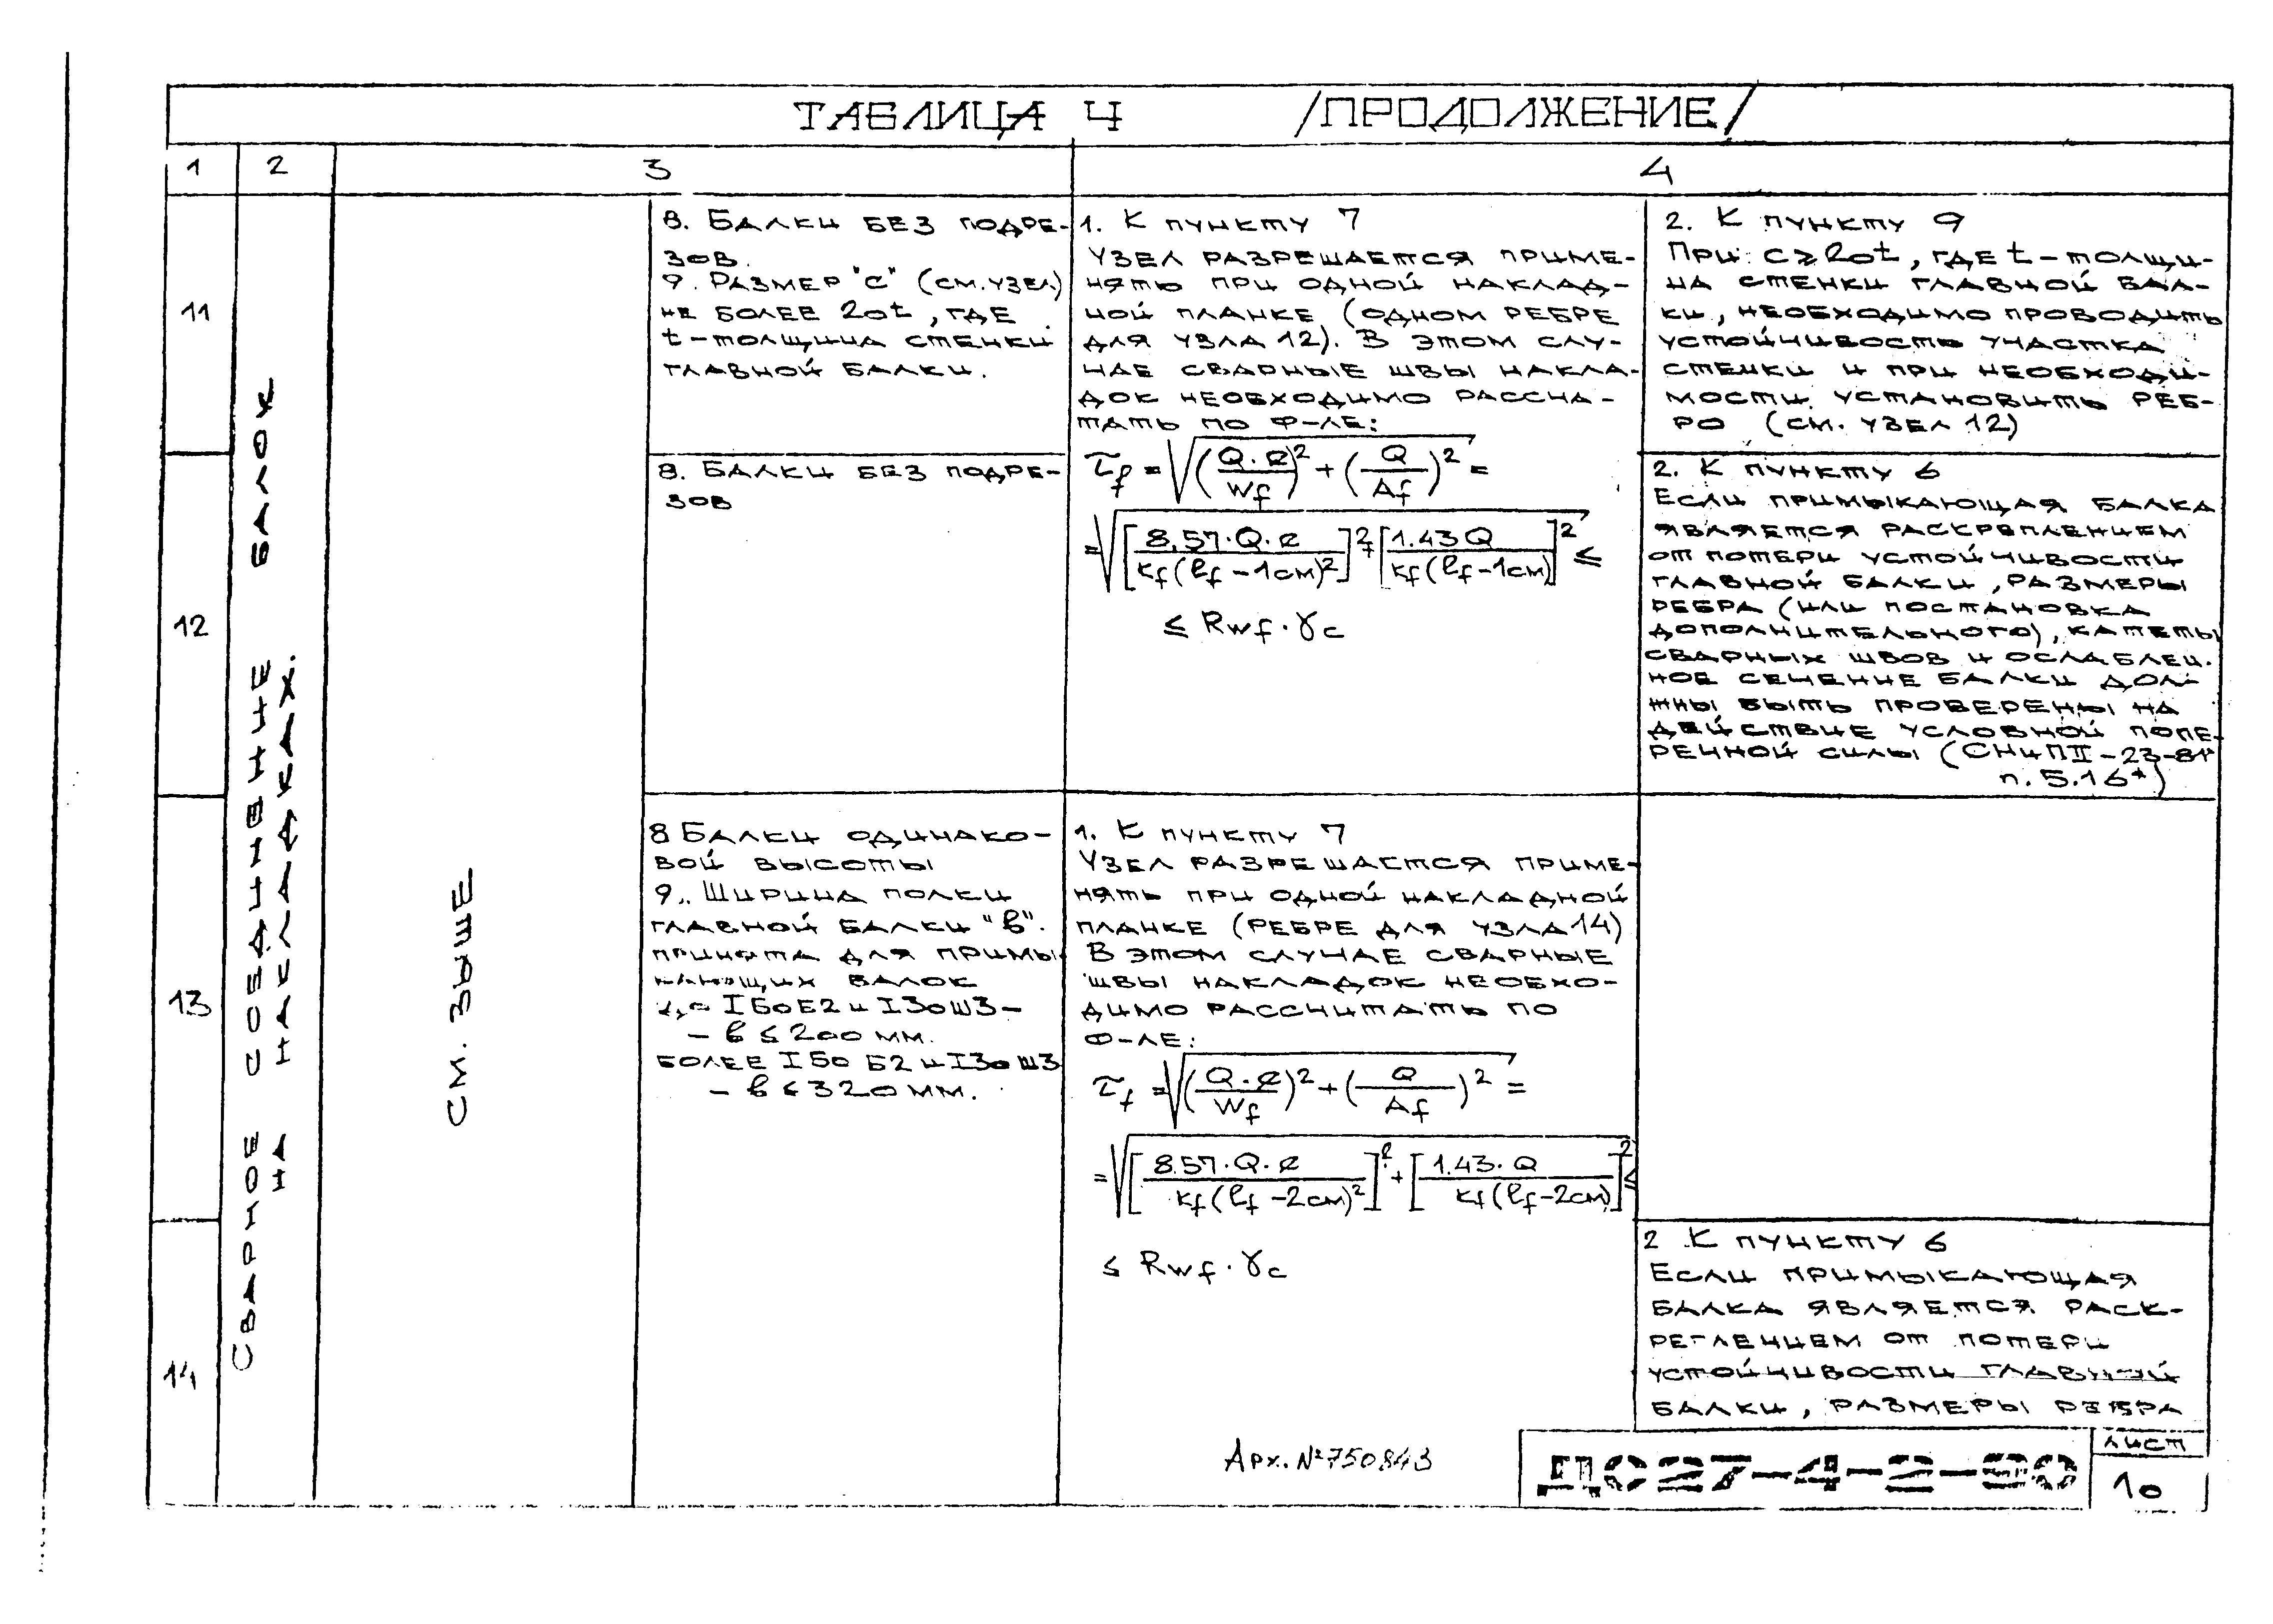 ТАБЛИЦА 4 /ПРОДОЛЖЕНИЕ/
1 2 3 4
11
12
13
14
СВАРНОЕ СОЕДИНЕНИЕ БАЛОК
НА НАКЛАДКАХ.
СМ. ВЫШЕ
8. БАЛКИ БЕЗ ПОДРЕ-
ЗОВ.
9. РАЗМЕР "С" (СМ. УЗЕЛ)
НЕ БОЛЕЕ 20t, ГДЕ
t-ТОЛЩИНА СТЕНКИ
ГЛАВНОЙ БАЛКИ.
1. К ПУНКТУ 7
УЗЕЛ РАЗРЕШАЕТСЯ ПРИМЕ-
НЯТЬ ПРИ ОДНОЙ НАКЛАД-
НОЙ ПЛАНКЕ (ОДНОМ РЕБРЕ
ДЛЯ УЗЛА 12). В ЭТОМ СЛУ-
ЧАЕ СВАРНЫЕ ШВЫ НАКЛА-
ДОК НЕОБХОДИМО РАССЧИ-
ТАТЬ ПО Ф-ЛЕ:
τf = √(Q·e/Wf)² + (Q/Af)² =
= √[8.57·Q·e/kf(ℓf-1см)²]² + [1.43Q/kf(ℓf-1см)]² ≤
≤ Rwf·γc
2. К ПУНКТУ 9
ПРИ С≥20t, ГДЕ t-ТОЛЩИ-
НА СТЕНКИ ГЛАВНОЙ БАЛ-
КИ, НЕОБХОДИМО ПРОВОДИТЬ
УСТОЙЧИВОСТЬ УЧАСТКА
СТЕНКИ И ПРИ НЕОБХОДИ-
МОСТИ УСТАНОВИТЬ РЕБ-
РО (СМ. УЗЕЛ 12)
8. БАЛКИ БЕЗ ПОДРЕ-
ЗОВ
2. К ПУНКТУ 6
ЕСЛИ ПРИМЫКАЮЩАЯ БАЛКА
ЯВЛЯЕТСЯ РАСКРЕПЛЕНИЕМ
ОТ ПОТЕРИ УСТОЙЧИВОСТИ
ГЛАВНОЙ БАЛКИ, РАЗМЕРЫ
РЕБРА (ИЛИ ПОСТАНОВКА
ДОПОЛНИТЕЛЬНОГО), КАТЕТЫ
СВАРНЫХ ШВОВ И ОСЛАБЛЕН.
НОЕ СЕЧЕНИЕ БАЛКИ ДОЛ-
ЖНЫ БЫТЬ ПРОВЕРЕНЫ НА
ДЕЙСТВИЕ УСЛОВНОЙ ПОПЕ-
РЕЧНОЙ СИЛЫ (СНиПII-23-81*
п. 5.16*)
8 БАЛКИ ОДИНАКО-
ВОЙ ВЫСОТЫ
9. ШИРИНА ПОЛКИ
ГЛАВНОЙ БАЛКИ "в"
ПРИНЯТА ДЛЯ ПРИМЫ-
КАЮЩИХ БАЛОК
ДО I50Б2 И I30Ш3-
- в ≤ 200 мм.
БОЛЕЕ I50Б2 И I30Ш3
- в ≤ 320 мм.
1. К ПУНКТУ 7
УЗЕЛ РАЗРЕШАЕТСЯ ПРИМЕ-
НЯТЬ ПРИ ОДНОЙ НАКЛАДНОЙ
ПЛАНКЕ (РЕБРЕ ДЛЯ УЗЛА 14)
В ЭТОМ СЛУЧАЕ СВАРНЫЕ
ШВЫ НАКЛАДОК НЕОБХО-
ДИМО РАССЧИТАТЬ ПО
Ф-ЛЕ:
τf = √(Q·e/Wf)² + (Q/Af)² =
= √[8.57·Q·e/kf(ℓf-2см)²]² + [1.43·Q/kf(ℓf-2см)]² ≤
≤ Rwf·γc
2 К ПУНКТУ 6
ЕСЛИ ПРИМЫКАЮЩАЯ
БАЛКА ЯВЛЯЕТСЯ РАСК-
РЕПЛЕНИЕМ ОТ ПОТЕРИ
УСТОЙЧИВОСТИ ГЛАВНОЙ
БАЛКИ, РАЗМЕРЫ РЕБРА
Арх. №750843
ДС27-4-2-90
ЛИСТ
10